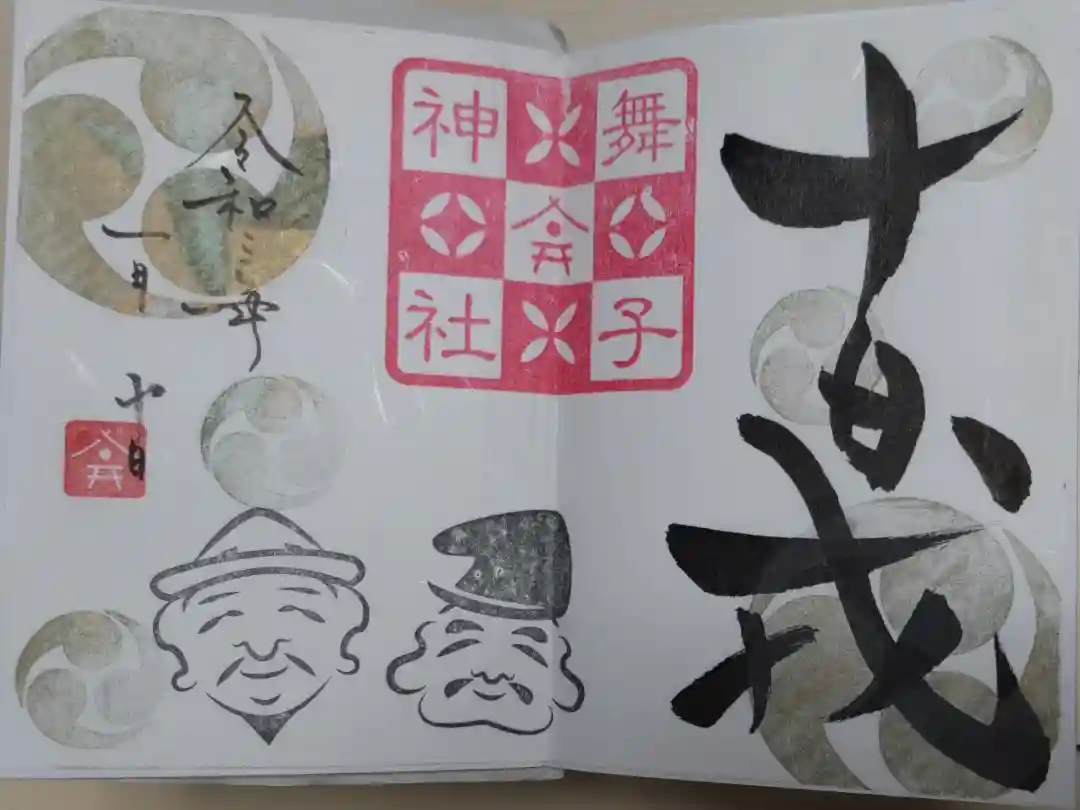 十日戎
舞子
神社
令和三年
一月十日